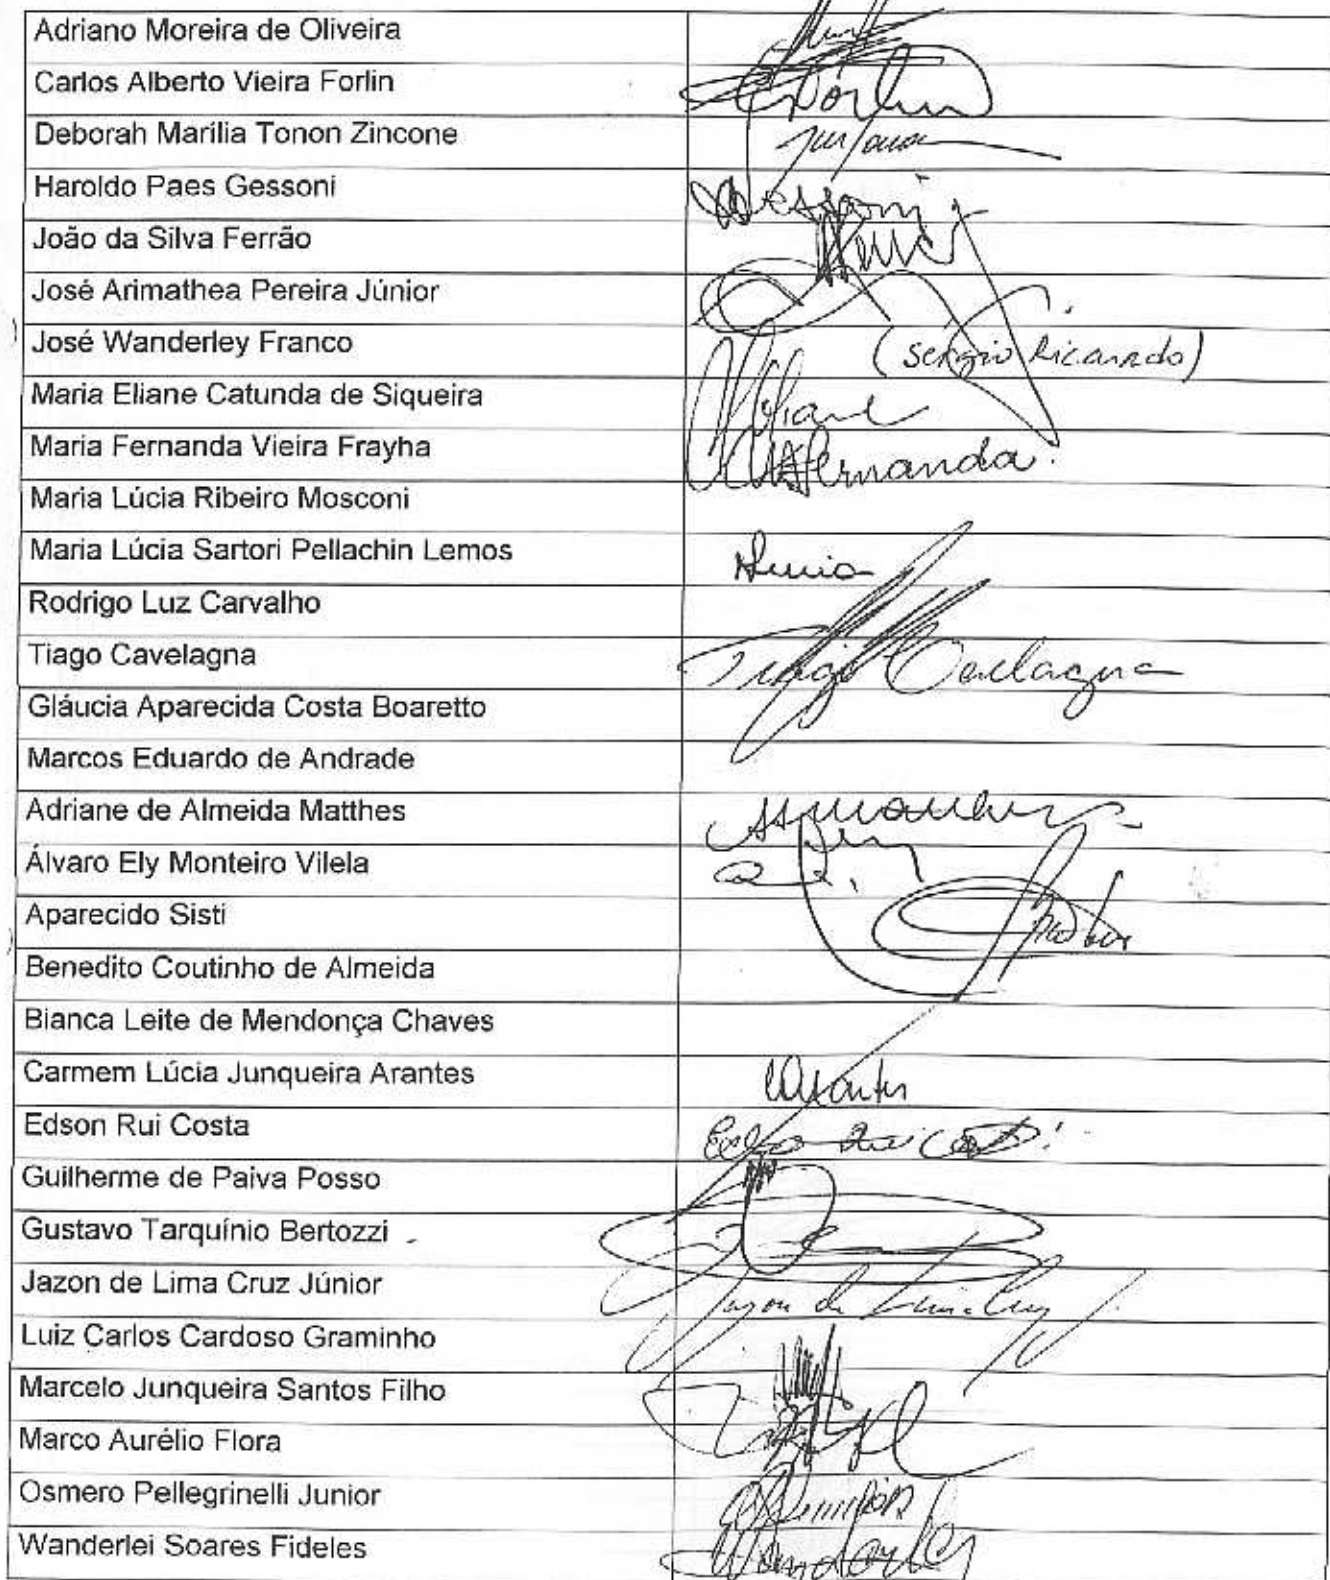 Adriano Moreira de Oliveira
Carlos Alberto Vieira Forlin
Forlin
Deborah Marília Tonon Zincone
Haroldo Paes Gessoni
Gessoni
João da Silva Ferrão
José Arimathea Pereira Júnior
José Wanderley Franco
(Sergio Ricardo)
Maria Eliane Catunda de Siqueira
Eliane
Maria Fernanda Vieira Frayha
Fernanda
Maria Lúcia Ribeiro Mosconi
Maria Lúcia Sartori Pellachin Lemos
Rodrigo Luz Carvalho
Tiago Cavelagna
Tiago Cavelagna
Gláucia Aparecida Costa Boaretto
Marcos Eduardo de Andrade
Adriane de Almeida Matthes
Álvaro Ely Monteiro Vilela
Aparecido Sisti
Benedito Coutinho de Almeida
Bianca Leite de Mendonça Chaves
Carmem Lúcia Junqueira Arantes
Edson Rui Costa
Edson Rui Costa
Guilherme de Paiva Posso
Gustavo Tarquínio Bertozzi
Jazon de Lima Cruz Júnior
Jazon de Lima Cruz J.
Luiz Carlos Cardoso Graminho
Marcelo Junqueira Santos Filho
Marco Aurélio Flora
Osmero Pellegrinelli Junior
Wanderlei Soares Fideles
Wanderley